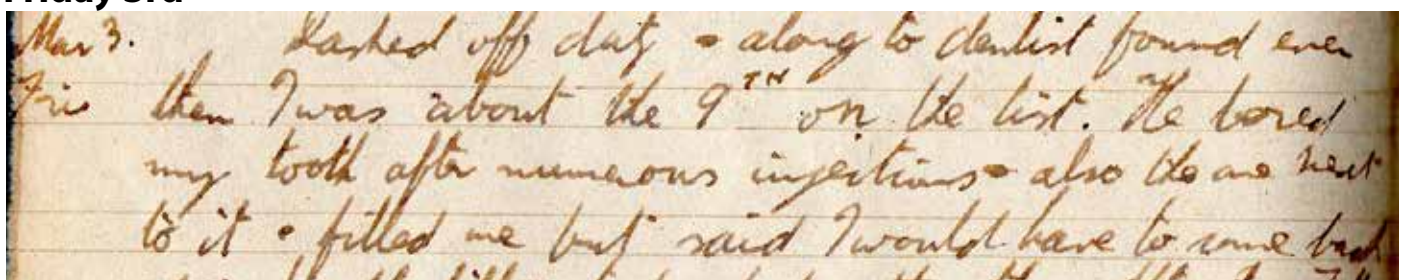 Mar 3. Dashed off duty & along to dentist found even
Fri then I was about the 9TH on the list. He bored
my tooth after numerous injections & also the one next
to it & filled one but said I would have to come back